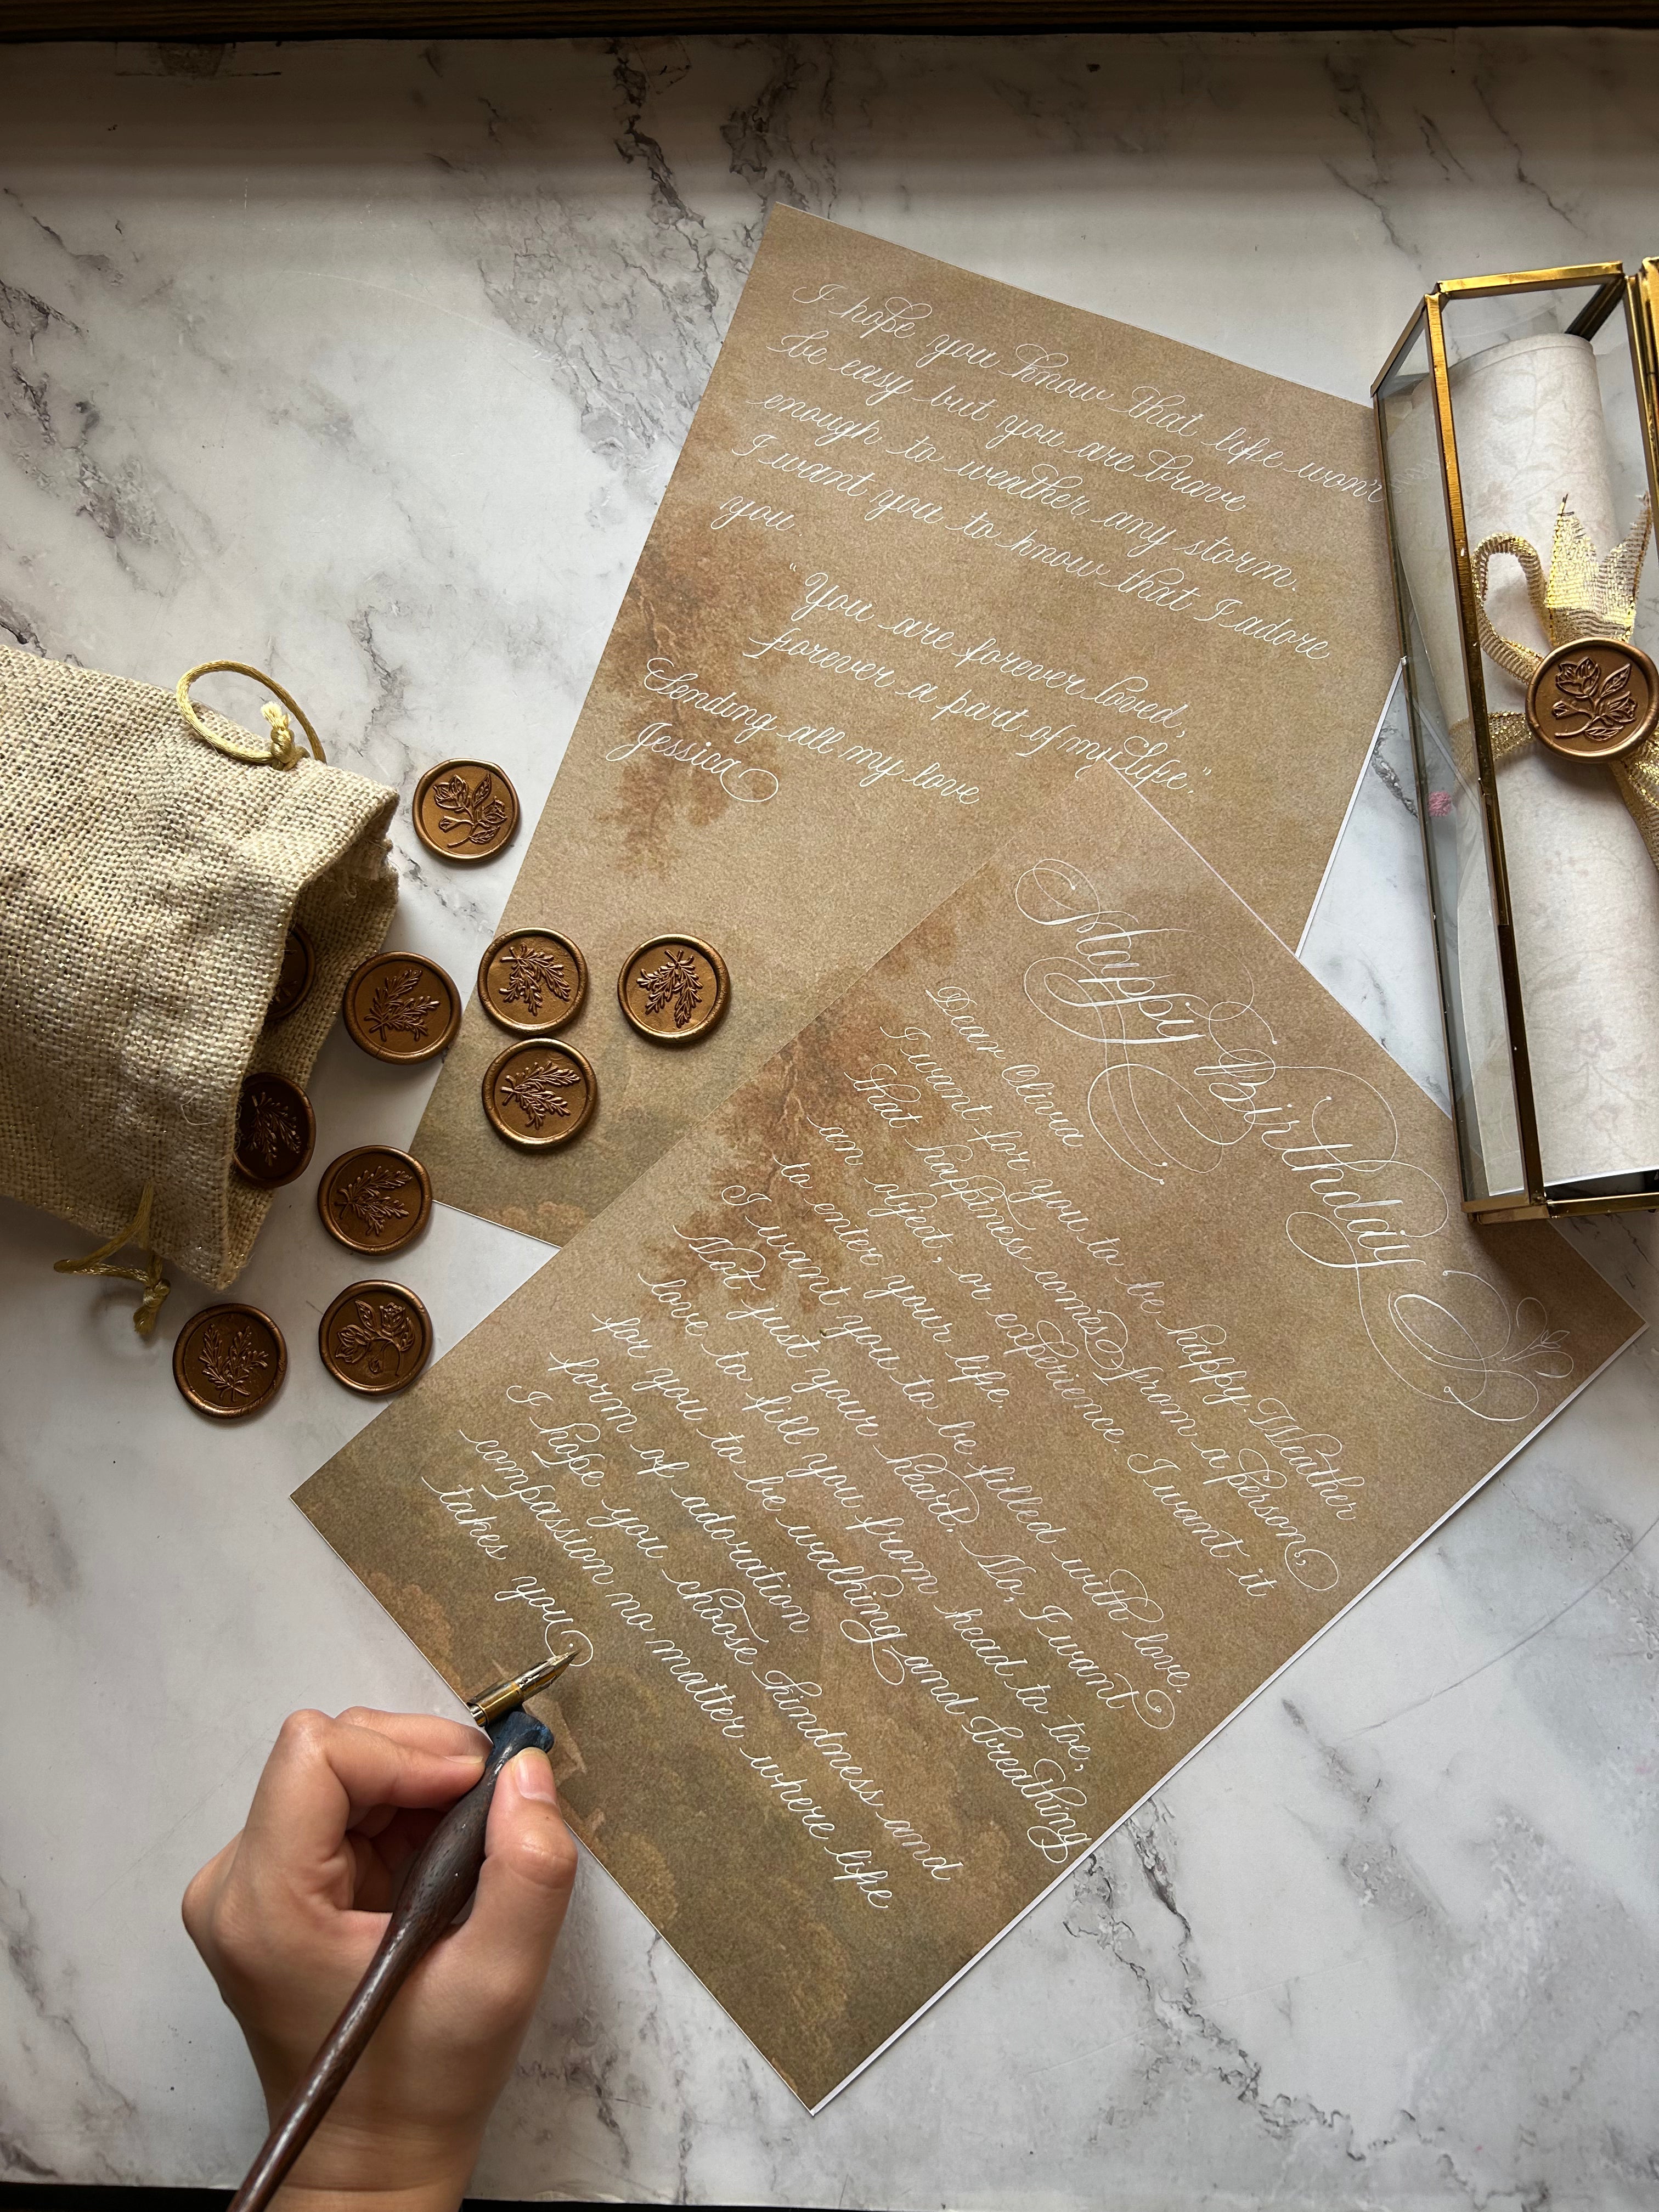 Happy Birthday
Dear Olivia
I want for you to be happy Weather
that happiness comes from a person,
an object, or experience. I want it
to enter your life.
I want you to be filled with love.
Not just your heart. No, I want
love to fill you from head to toe,
for you to be walking and breathing
form of adoration
I hope you choose kindness and
compassion no matter where life
takes you
I hope you know that life won't
be easy but you are brave
enough to weather any storm.
I want you to know that I adore
you
"You are forever loved,
forever a part of my life."
Sending all my love
Jessica